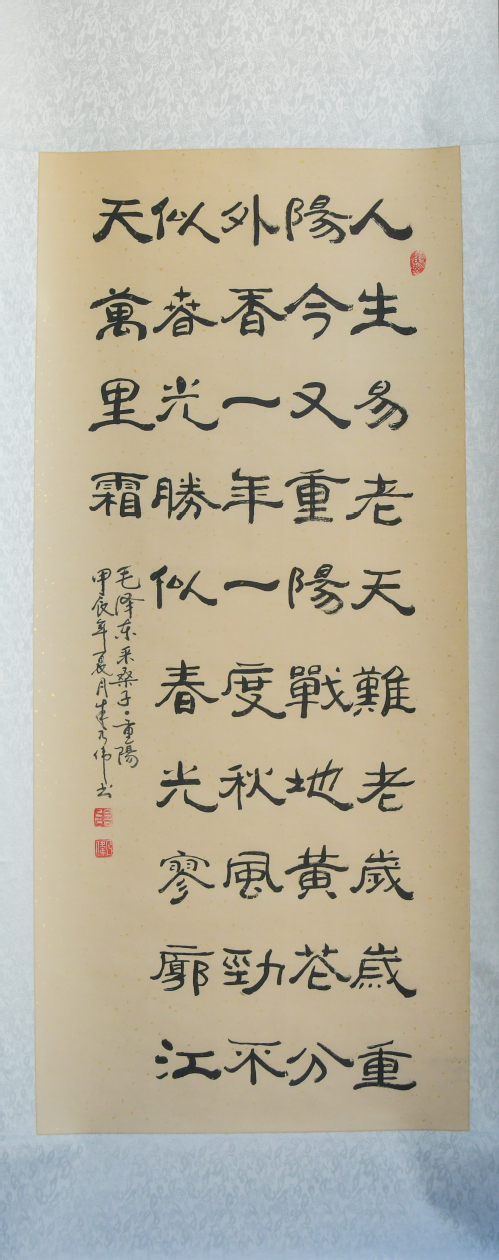 人生易老天難老歲歲重
陽今又重陽戰地黃花分
外香一年一度秋風勁不
似春光勝似春光寥廓江
天萬里霜
毛泽东采桑子·重陽
甲辰年夏月乃伟书